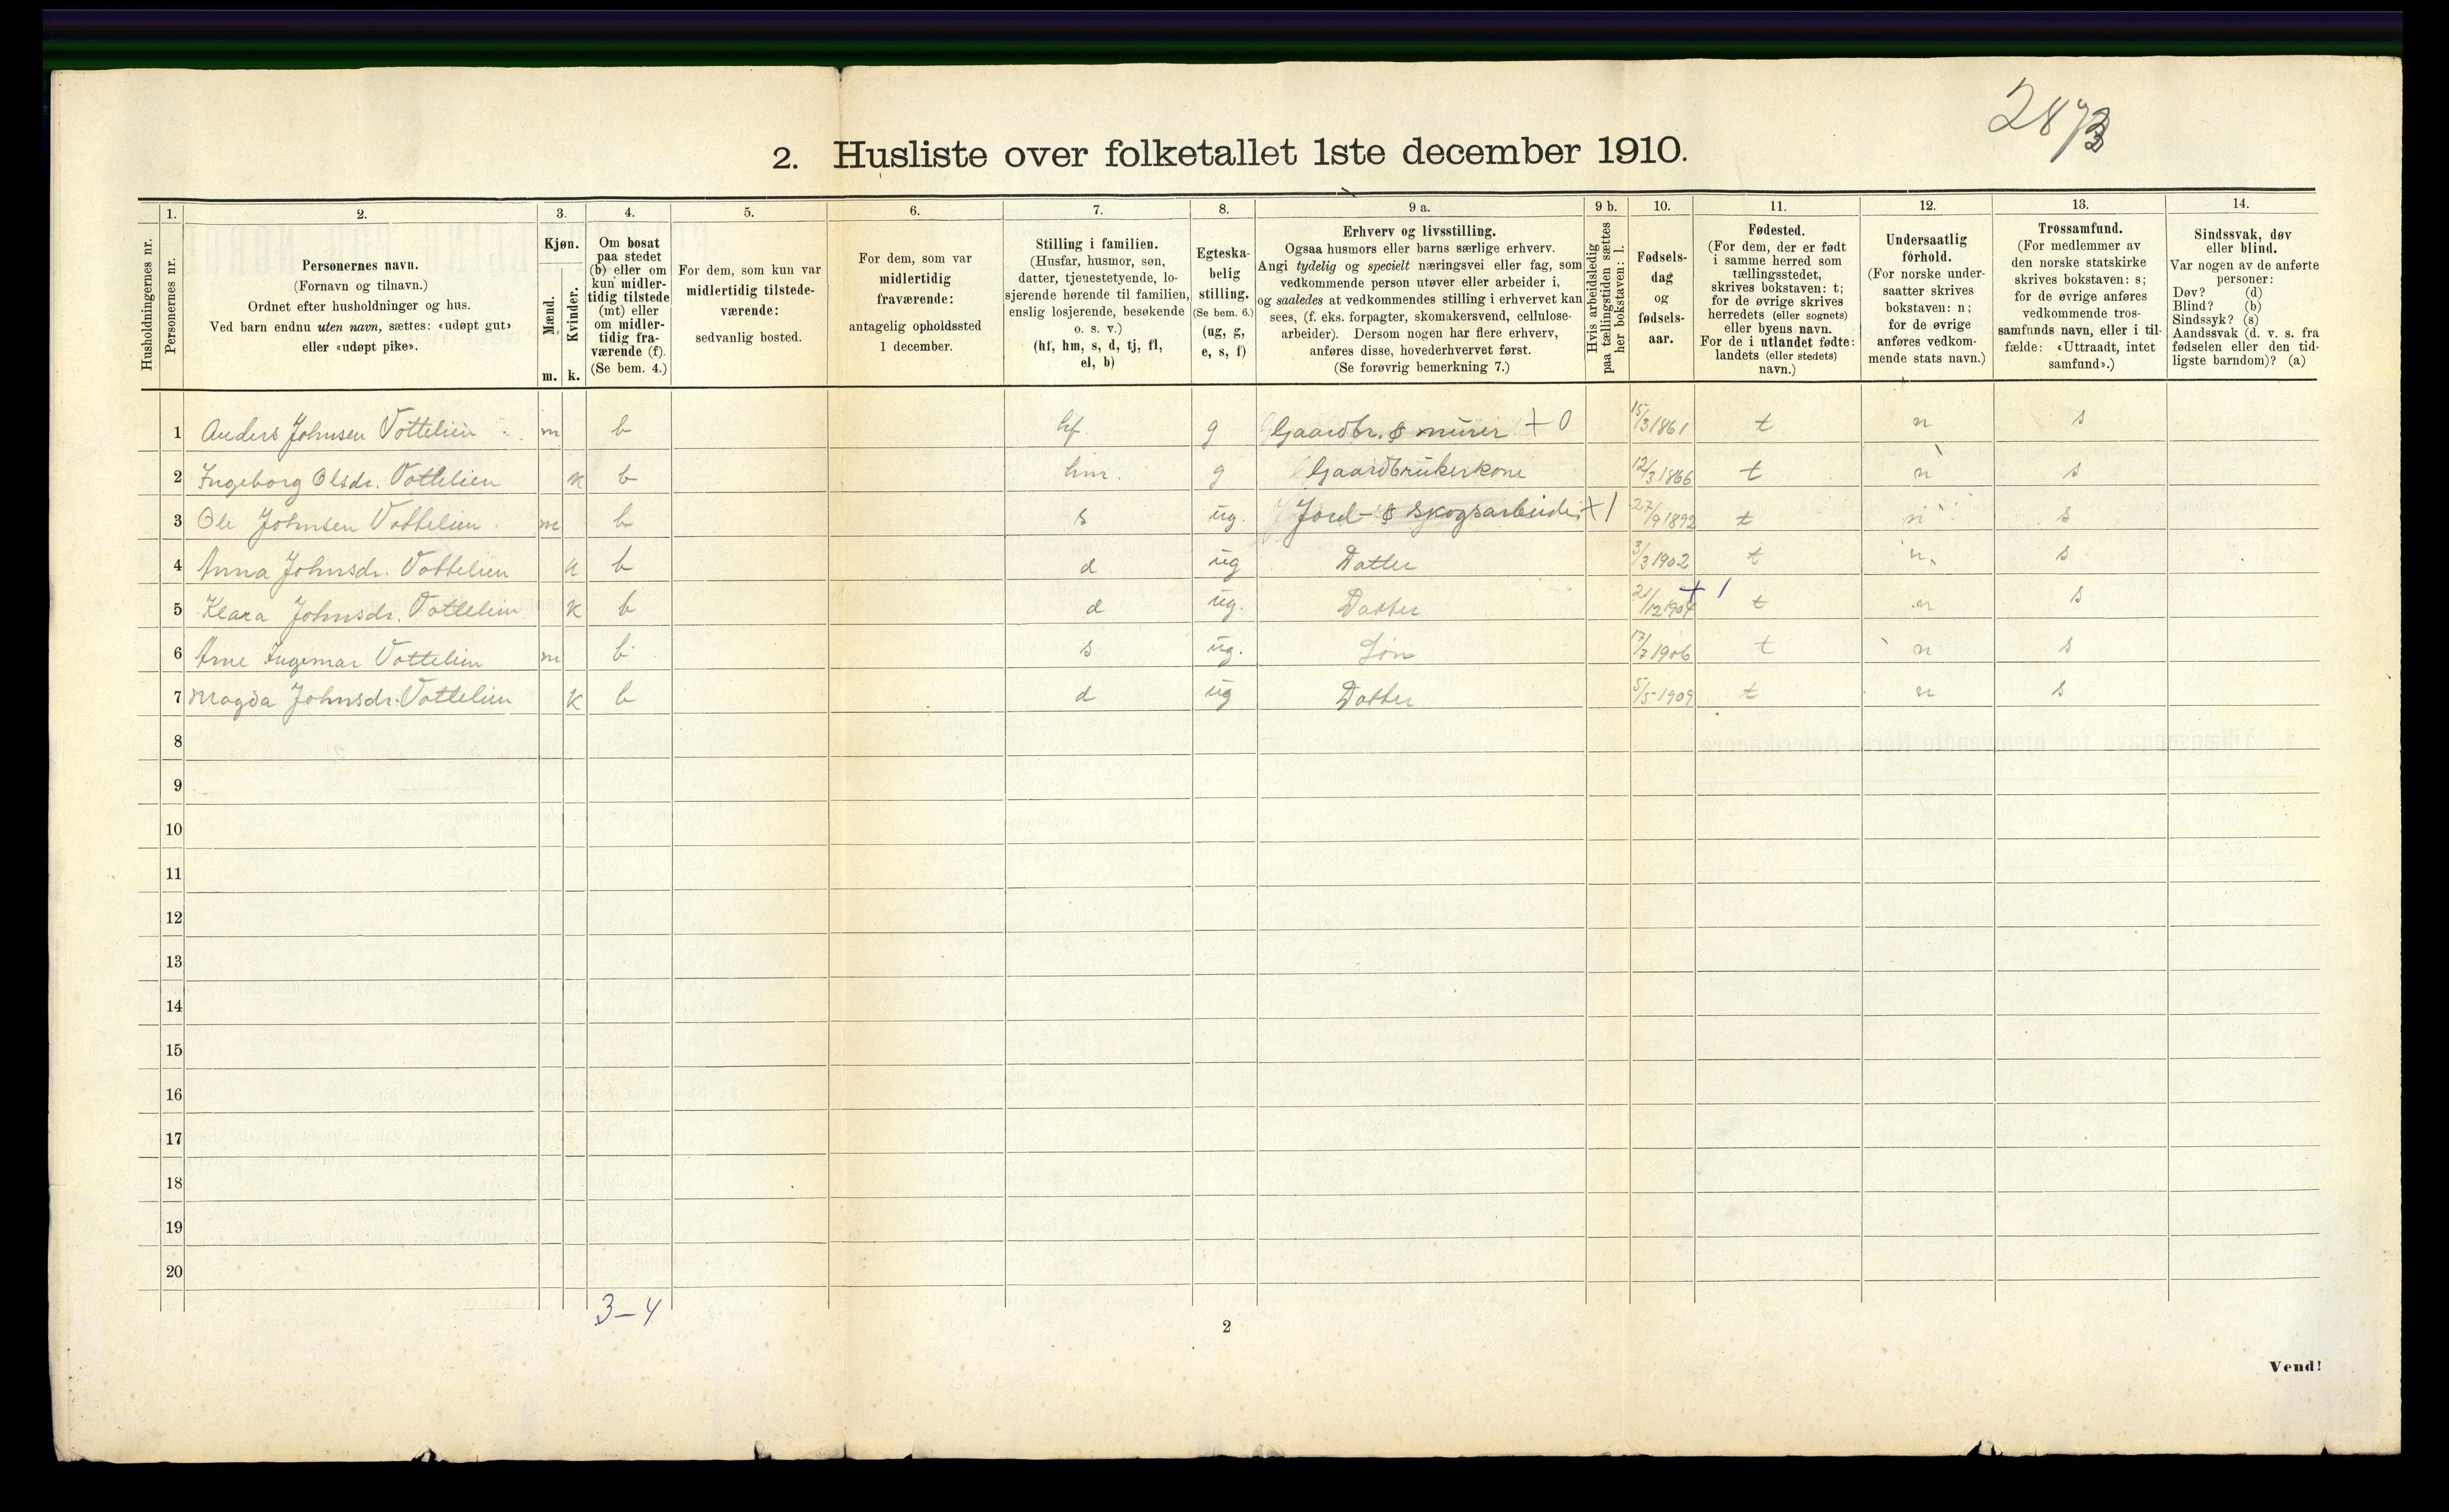 2873
2. Husliste over folketallet 1ste december 1910.
Husholdningernes nr.
1.
Personernes nr.
2.
Personernes navn.
(Fornavn og tilnavn.)
Ordnet efter husholdninger og hus.
Ved barn endnu uten navn, sættes: «udøpt gut»
eller «udøpt pike».
3.
Kjøn.
Mænd.
m.
Kvinder.
k.
4.
Om bosat
paa stedet
(b) eller om
kun midler-
tidig tilstede
(mt) eller
om midler-
tidig fra-
værende (f).
(Se bem. 4.)
5.
For dem, som kun var
midlertidig tilstede-
værende:
sedvanlig bosted.
6.
For dem, som var
midlertidig
fraværende:
antagelig opholdssted
1 december.
7.
Stilling i familien.
(Husfar, husmor, søn,
datter, tjenestetyende, lo-
sjerende hørende til familien,
enslig losjerende, besøkende
o. s. v.)
(hf, hm, s, d, tj, fl,
el, b)
8.
Egteska-
belig
stilling.
(Se bem. 6.)
(ug, g,
e, s, f)
9 a.
Erhverv og livsstilling.
Ogsaa husmors eller barns særlige erhverv.
Angi tydelig og specielt næringsvei eller fag, som
vedkommende person utøver eller arbeider i,
og saaledes at vedkommendes stilling i erhvervet kan
sees, (f. eks. forpagter, skomakersvend, cellulose-
arbeider). Dersom nogen har flere erhverv,
anføres disse, hovederhvervet først.
(Se forøvrig bemerkning 7.)
9 b.
Hvis arbeidsledig
paa tællingstiden sættes
her bokstaven: l.
10.
Fødsels-
dag
og
fødsels-
aar.
11.
Fødested.
(For dem, der er født
i samme herred som
tællingsstedet,
skrives bokstaven: t;
for de øvrige skrives
herredets (eller sognets)
eller byens navn.
For de i utlandet fødte:
landets (eller stedets)
navn.)
12.
Undersaatlig
forhold.
(For norske under-
saatter skrives
bokstaven: n;
for de øvrige
anføres vedkom-
mende stats navn.)
13.
Trossamfund.
(For medlemmer av
den norske statskirke
skrives bokstaven: s;
for de øvrige anføres
vedkommende tros-
samfunds navn, eller i til-
fælde: «Uttraadt, intet
samfund».)
14.
Sindssvak, døv
eller blind.
Var nogen av de anførte
personer:
Døv? (d)
Blind? (b)
Sindssyk? (s)
Aandssvak (d. v. s. fra
fødselen eller den tid-
ligste barndom)? (a)
1 Anders Johnsen Vottelien m b hf. g Gaardbr. & murer + 0 15/3 1861 t n s
2 Ingeborg Olsdr. Vottelien k b hm. g Gaardbrukerkone 12/3 1866 t n s
3 Ole Johnsen Vottelien m b s ug. Jord- & skogsarbeider + 1 27/9 1892 t n s
4 Anna Johnsdr. Vottelien k b d ug Datter 3/3 1902 t n s
5 Klara Johnsdr. Vottelien k b d ug. Datter 21/12 1904 + 1 t n s
6 Arne Ingemar Vottelien m b s ug. Søn 17/7 1906 t n s
7 Magda Johnsdr. Vottelien k b d ug Datter 5/5-1909 t n s
8
9
10
11
12
13
14
15
16
17
18
19
20
3-4
2
Vend!